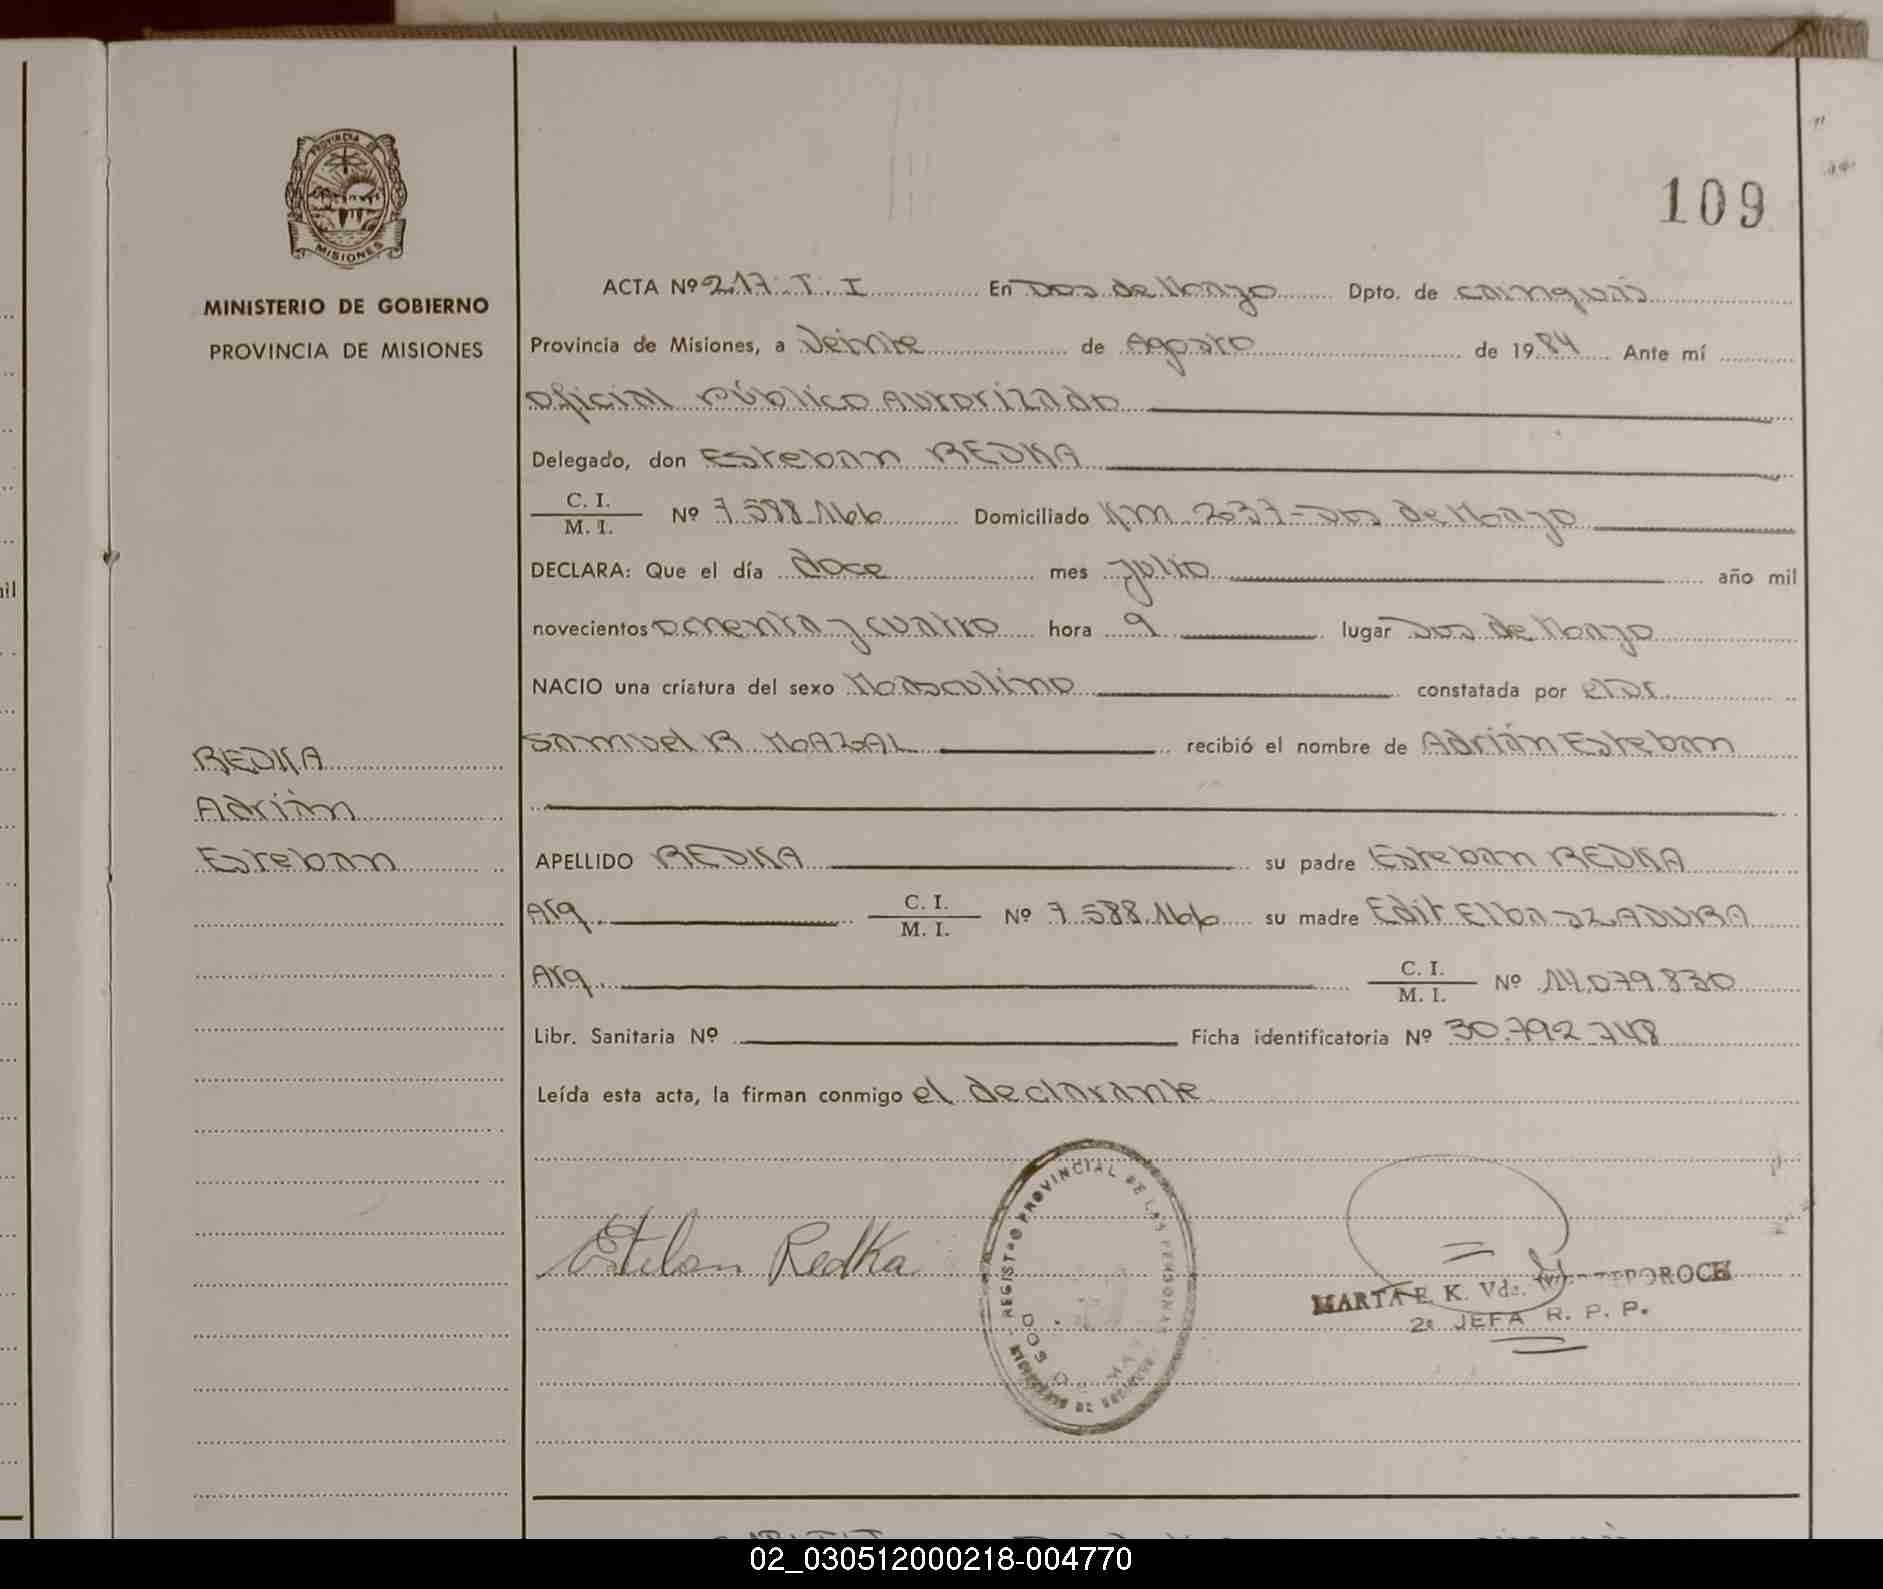 PROVINCIA DE
MISIONES
MINISTERIO DE GOBIERNO
PROVINCIA DE MISIONES
109
ACTA Nº 217. T. I En Dos de Mayo Dpto. de Cainguás
Provincia de Misiones, a Veinte de Agosto de 1984 Ante mí
Oficial Público Autorizado
Delegado, don Esteban REDKA
C. I.
M. I. Nº 7.588.166 Domiciliado KM 237-Dos de Mayo
DECLARA: Que el día doce mes julio año mil
novecientos ochenta y cuatro hora 9 lugar Dos de Mayo
NACIO una criatura del sexo Masculino constatada por
Samuel R. MAZAL recibió el nombre de Adrián Esteban
REDKA
Adrián
Esteban
APELLIDO REDKA su padre Esteban REDKA
Arg. C. I.
M. I. Nº 7.588.166 su madre Edit Elba SZADURA
Arg. C. I.
M. I. Nº 14.079.830
Libr. Sanitaria Nº Ficha identificatoria Nº 30.792.748
Leída esta acta, la firman conmigo el declarante
Esteban Redka
REGISTRO PROVINCIAL DE LAS PERSONAS
DOS DE MAYO
MARTA E. K. Vda.
2ª JEFA R. P. P.
02_030512000218-004770